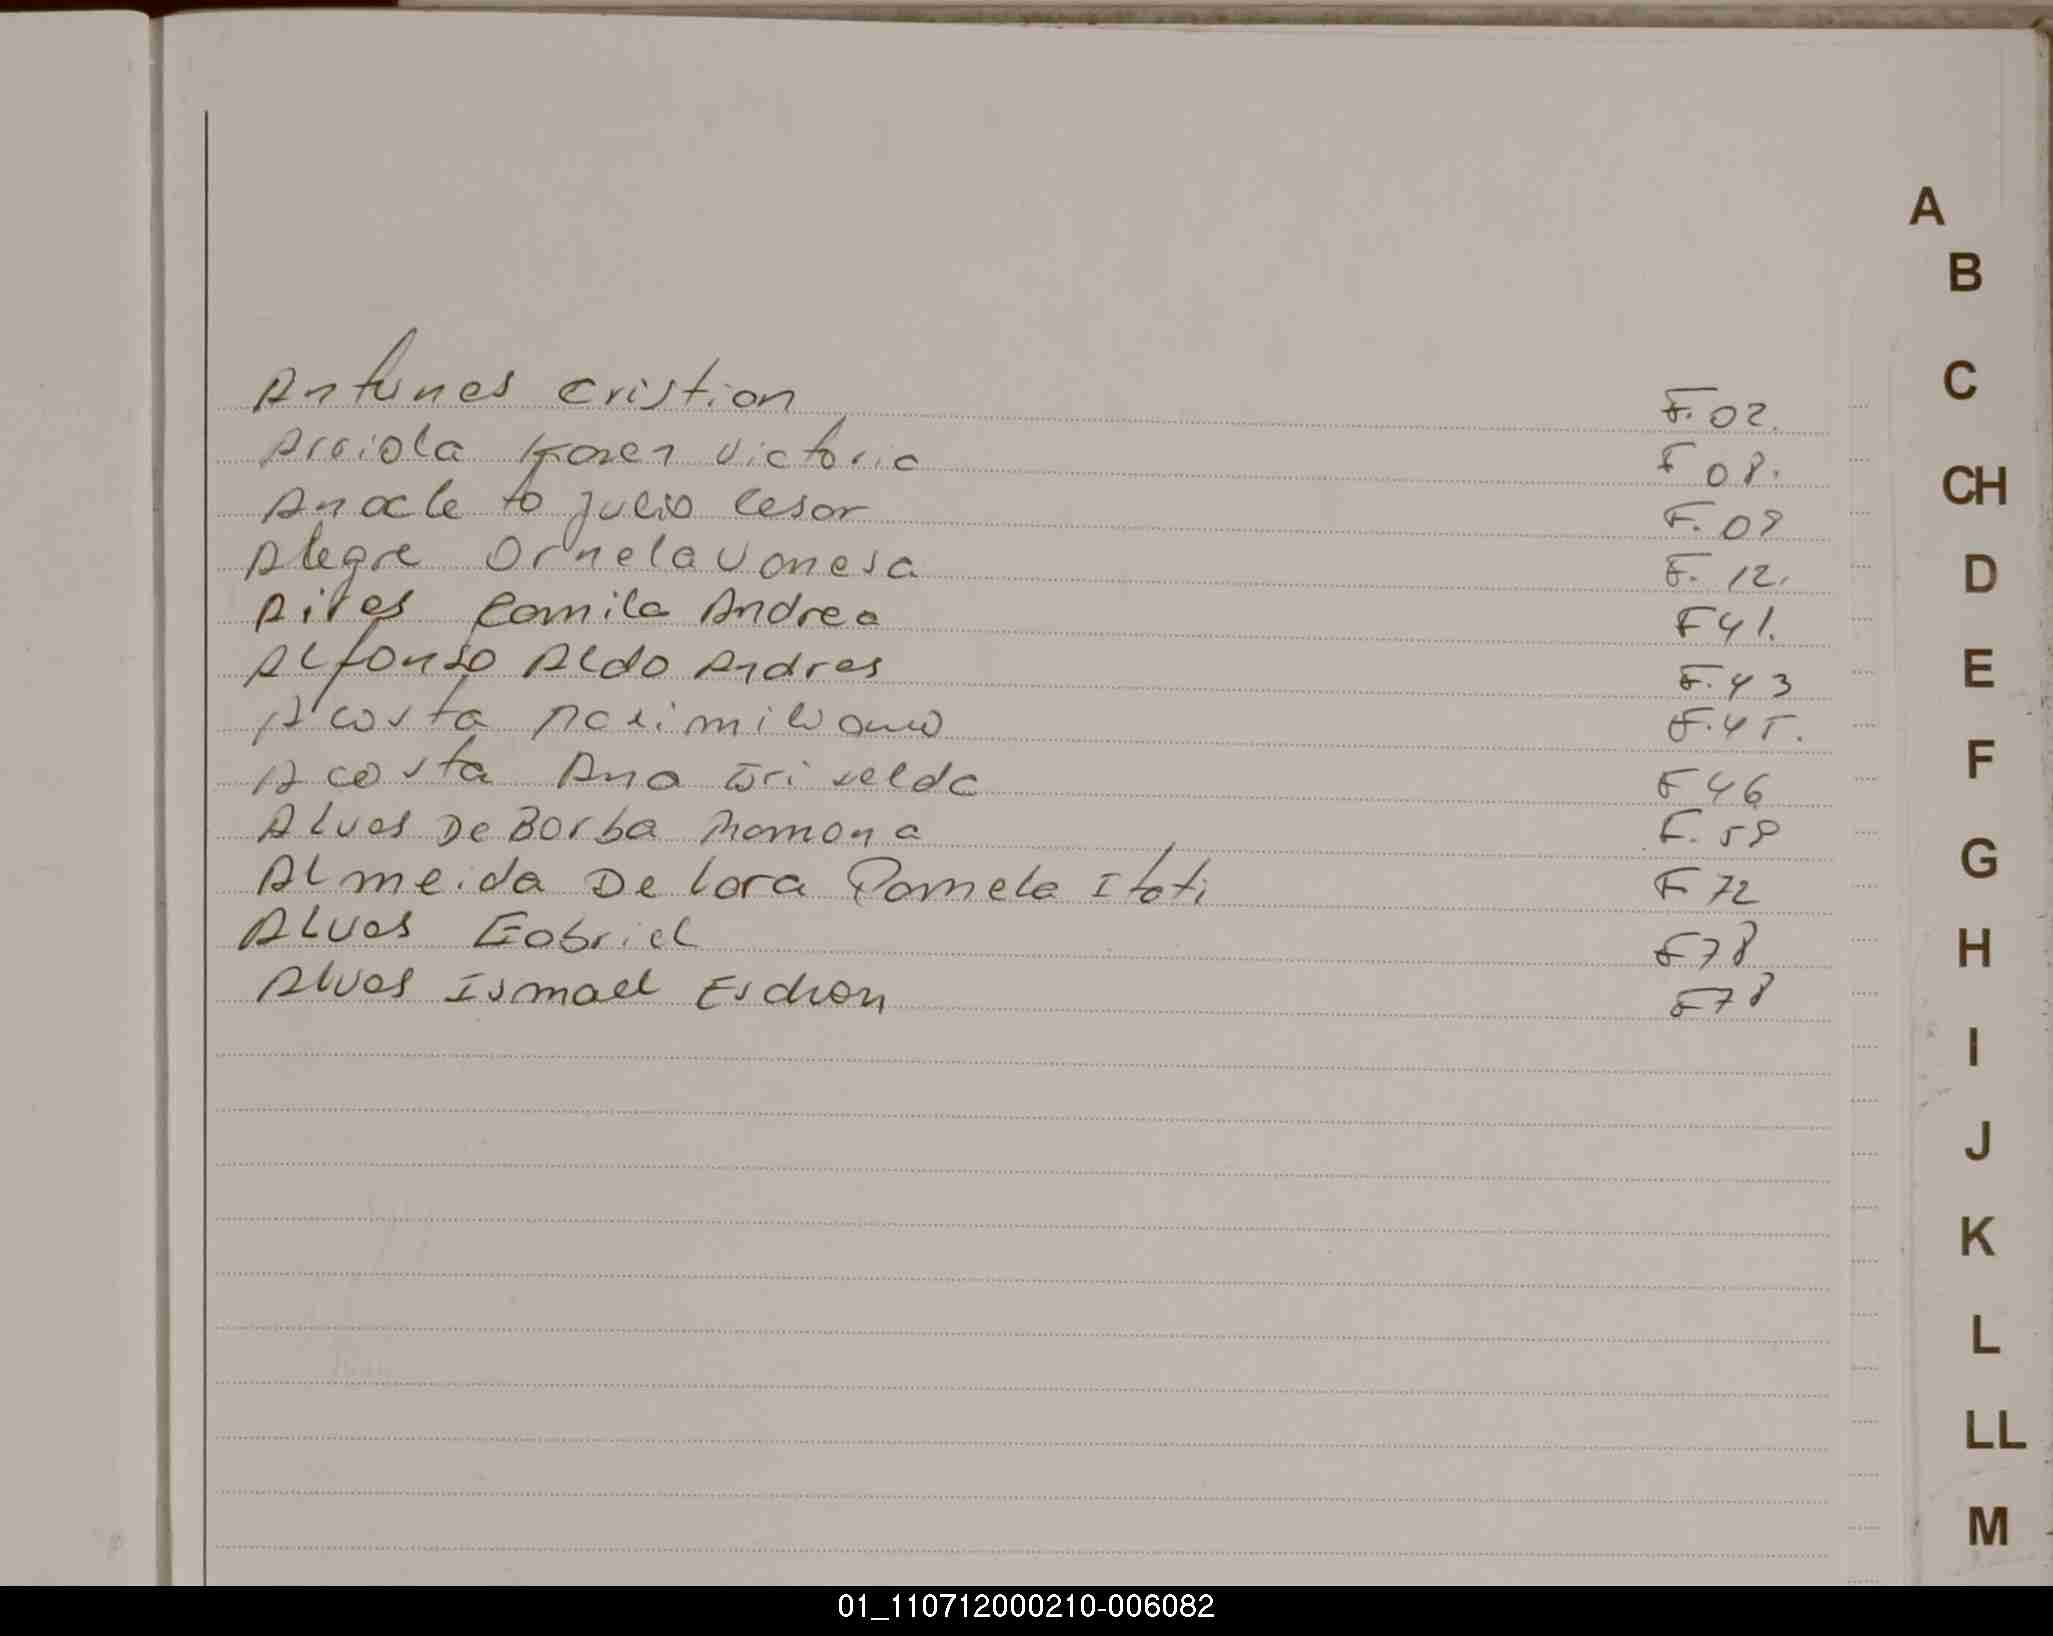 Antunes Cristian F. 02.
Arriola Karen Victoria F 08.
Anacleto Julio Cesar F. 09
Alegre Ornela Vanesa F. 12.
Aires Camila Andrea F 41.
Alfonso Aldo Andres F. 43
Acosta Maximiliano F. 45.
Acosta Ana Griselda F 46
Alves De Borba Ramona F. 59
Almeida De Lara Pamela Itati F 72
Alves Gabriel F 78
Alves Ismael F 78
A
B
C
CH
D
E
F
G
H
I
J
K
L
LL
M
01_110712000210-006082